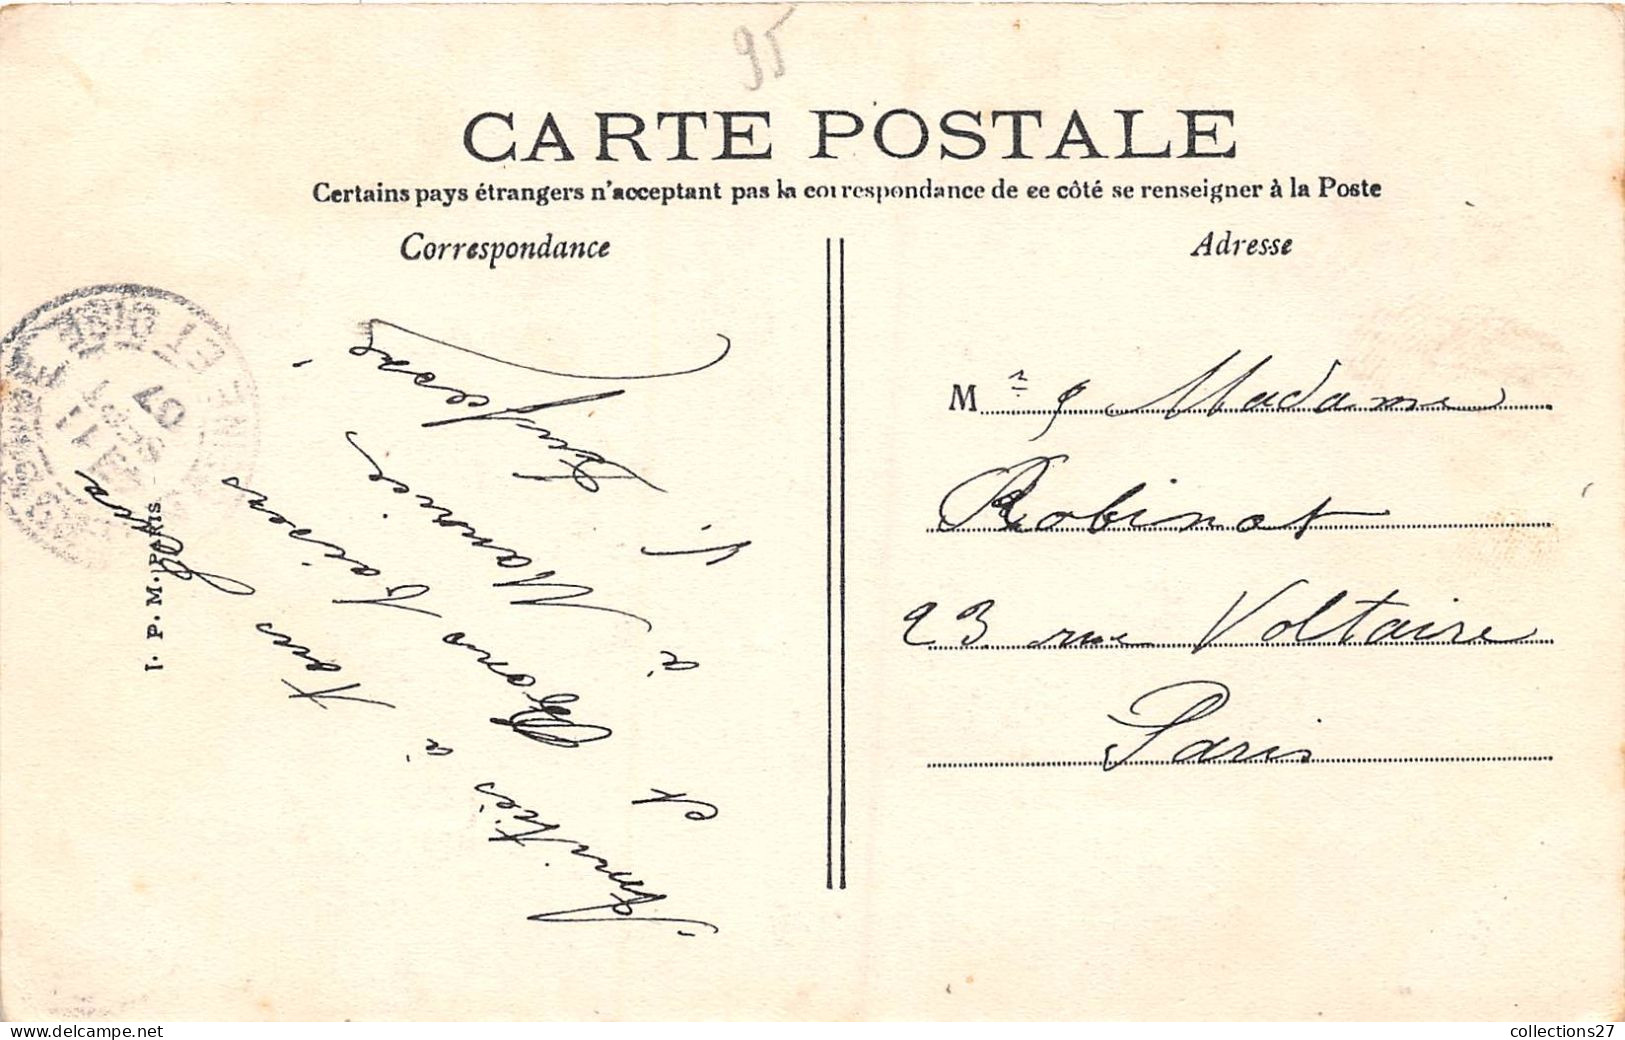 95
CARTE POSTALE
Certains pays étrangers n'acceptant pas la correspondance de ce côté se renseigner à la Poste
Correspondance
Adresse
Amitiés à tous
et Bons baisers
à Marie
V.
I. P. M. PARIS
ET OISE
11
SEPT
07
M r & Madame
Robinot
23 rue Voltaire
Paris
collections27
www.delcampe.net